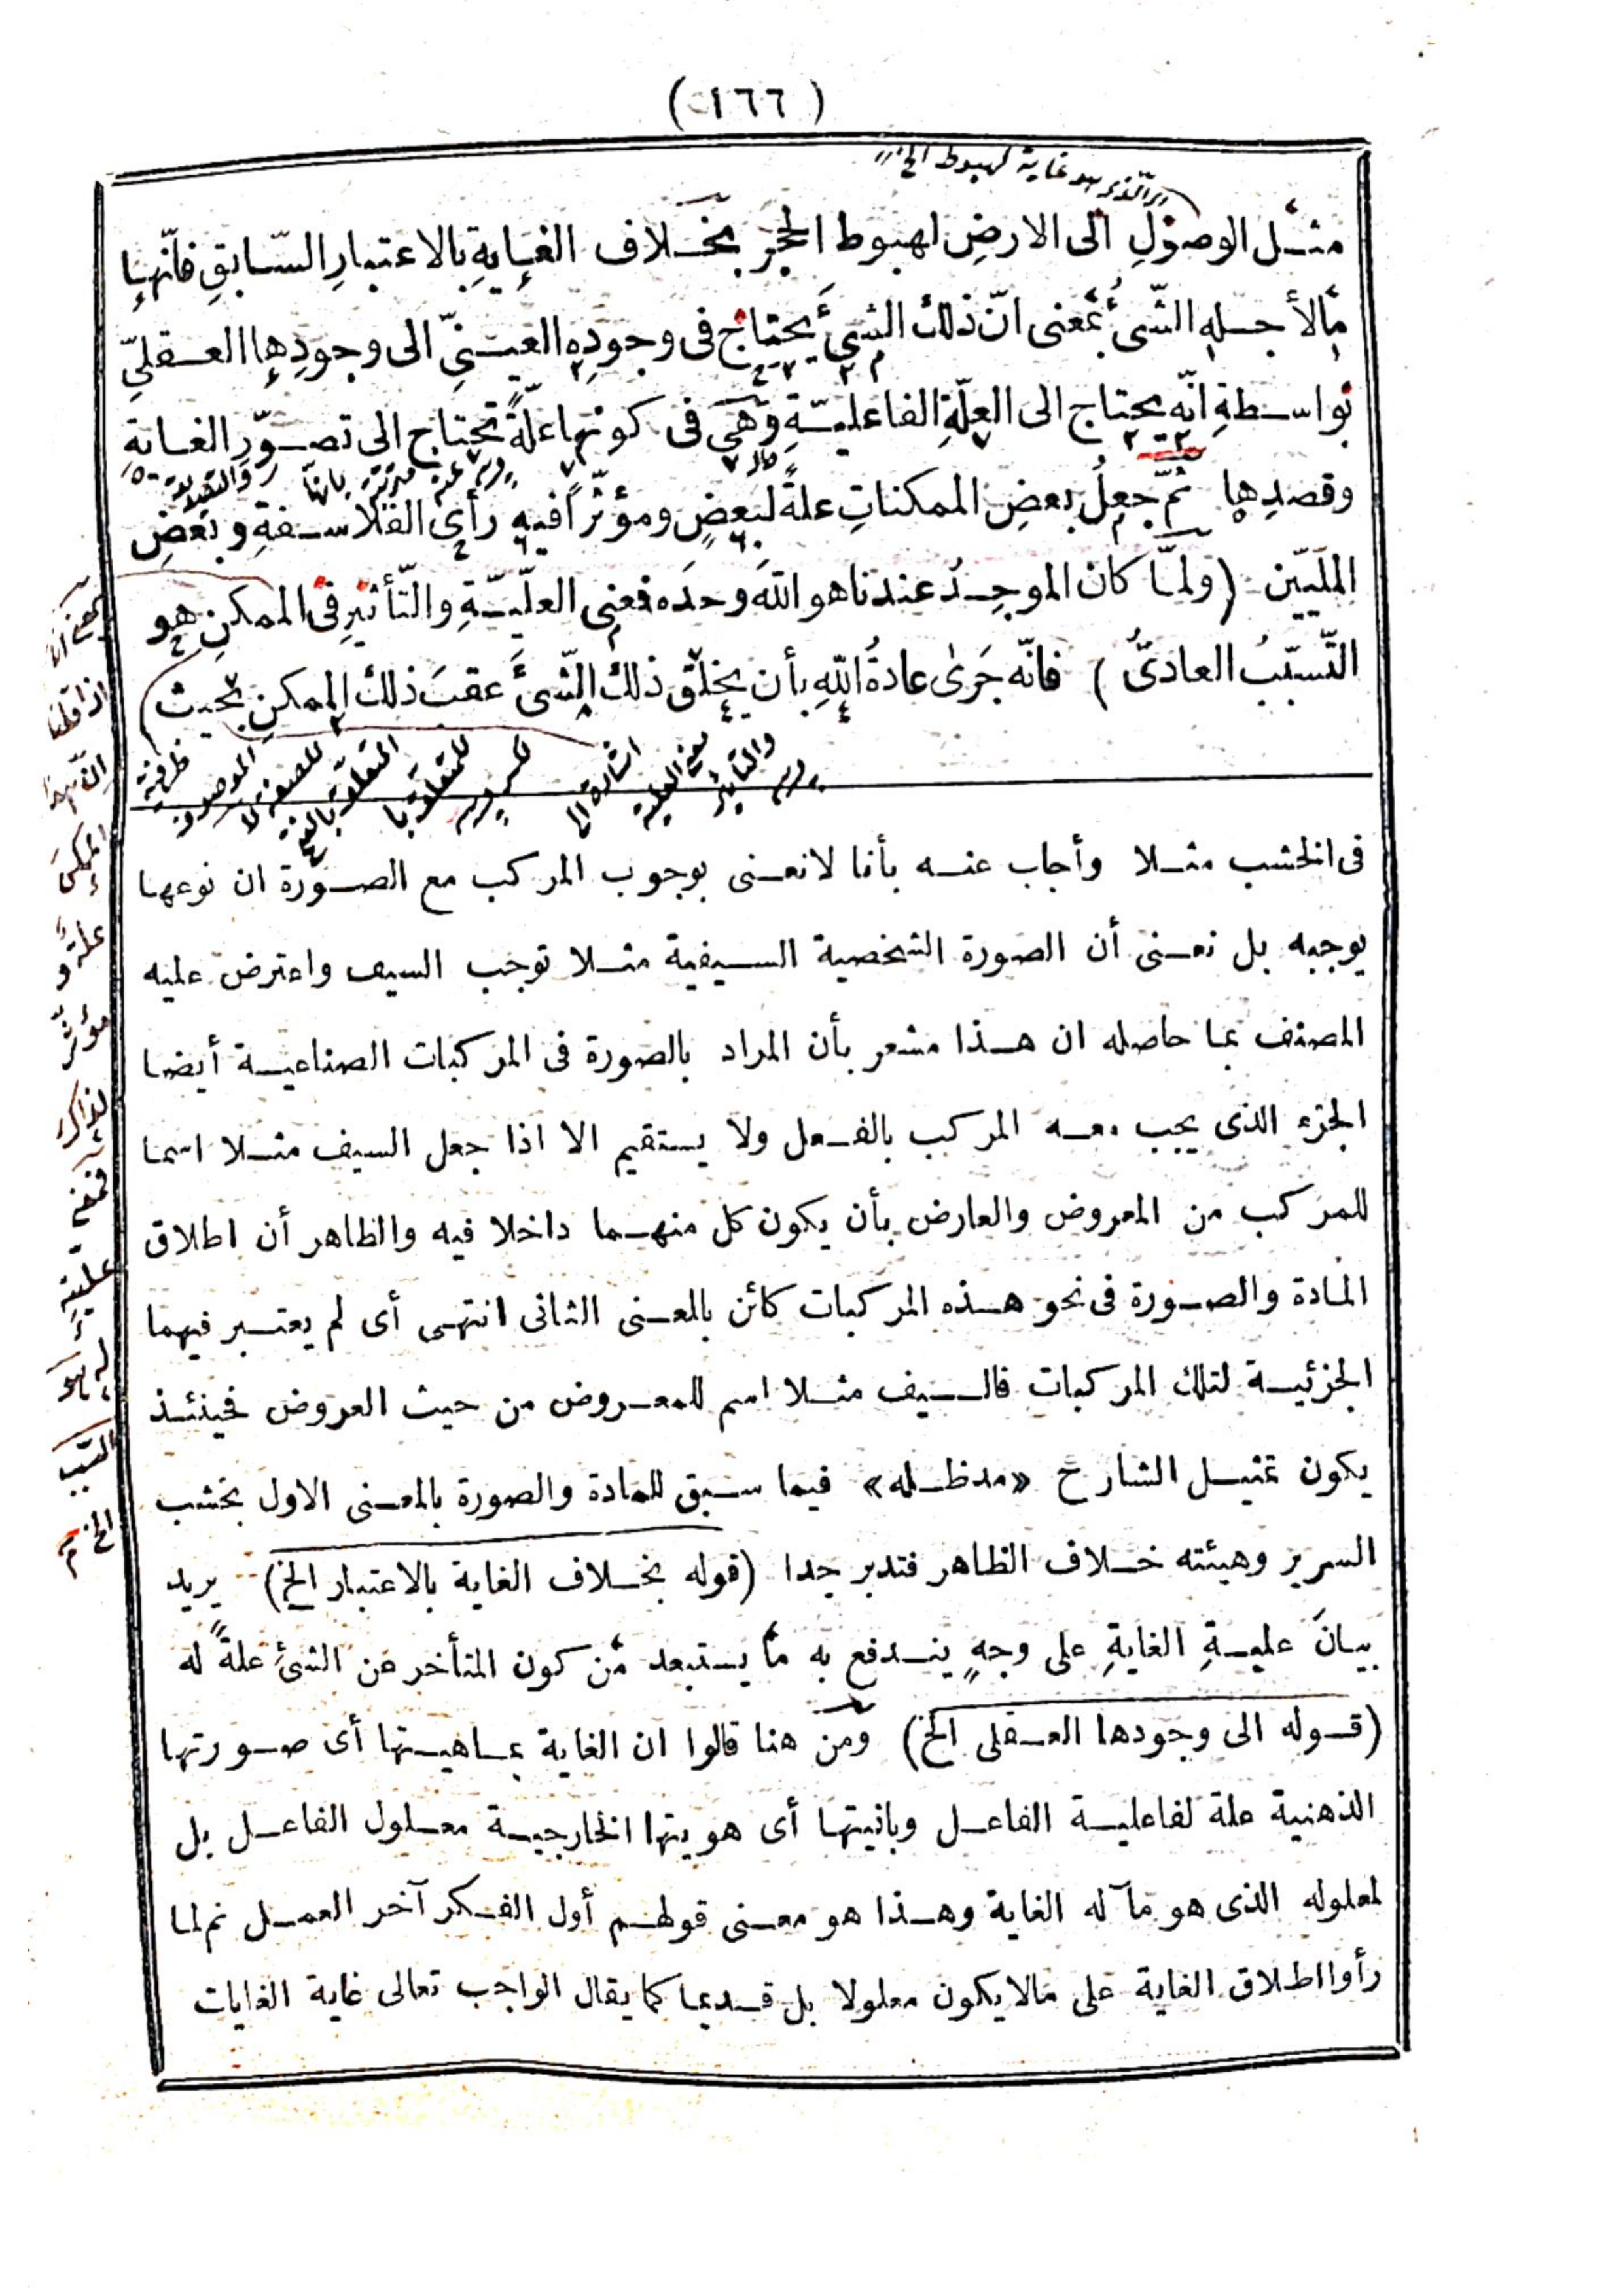 (١٦٦)
والذى هو غاية لهبوط الخ
مثل الوصول الى الارض لهبوط الحجر بخلاف الغاية بالاعتبار السّابق فانّها
مالأجله الشّىء بمعنى انّ ذلك الشىء يحتاج فى وجوده العينىّ الى وجودها العقلىّ
بواسطة انّه يحتاج الى العلّة الفاعليّة وهى فى كونها علّة تحتاج الى تصوّر الغاية
وقصدها ثمّ جعل بعض الممكنات علة لبعض ومؤثّرا فيه رأى الفلاسفة وبعض
الملّيّين (ولمّا كان الموجد عندنا هو الله وحده فمعنى العلّيّة والتّأثير فى الممكن هو
التّسبّب العادىّ) فانّه جرى عادة الله بأن يخلق ذلك الشّىء عقب ذلك الممكن بحيث
ظرفية
اشارة الى
معنى العلية
والتأثير
فى الخشب مثلا وأجاب عنه بأنا لانعنى بوجوب المركب مع الصورة ان نوعها
يوجبه بل نعنى أن الصورة الشخصية السيفية مثلا توجب السيف واعترض عليه
المصنف بما حاصله ان هذا مشعر بأن المراد بالصورة فى المركبات الصناعية أيضا
الجزء الذى يجب معه المركب بالفعل ولا يستقيم الا اذا جعل السيف مثلا اسما
للمركب من المعروض والعارض بأن يكون كل منهما داخلا فيه والظاهر أن اطلاق
المادة والصورة فى نحو هذه المركبات كائن بالمعنى الثانى انتهى أى لم يعتبر فيهما
الجزئية لتلك المركبات فالسيف مثلا اسم للمعروض من حيث العروض فحينئذ
يكون تمثيل الشارح «مدظله» فيما سبق للمادة والصورة بالمعنى الاول بخشب
السرير وهيئته خلاف الظاهر فتدبر جدا (قوله بخلاف الغاية بالاعتبار الخ) يريد
بيان علية الغاية على وجه يندفع به ما يستبعد من كون المتأخر عن الشئ علة له
(قوله الى وجودها العقلى الخ) ومن هنا قالوا ان الغاية بماهيتها أى صورتها
الذهنية علة لفاعلية الفاعل وبانيتها أى هويتها الخارجية معلول الفاعل بل
لمعلوله الذى هو مآله الغاية وهذا هو معنى قولهم أول الفكر آخر العمل ثم لما
رأوا اطلاق الغاية على مالا يكون معلولا بل قديما كما يقال الواجب تعالى غاية الغايات
اذا قلنا
الممكن
علة و
مؤثّر
لذاك
فمعنى
علّيّته
له هو
التسبب
الخ